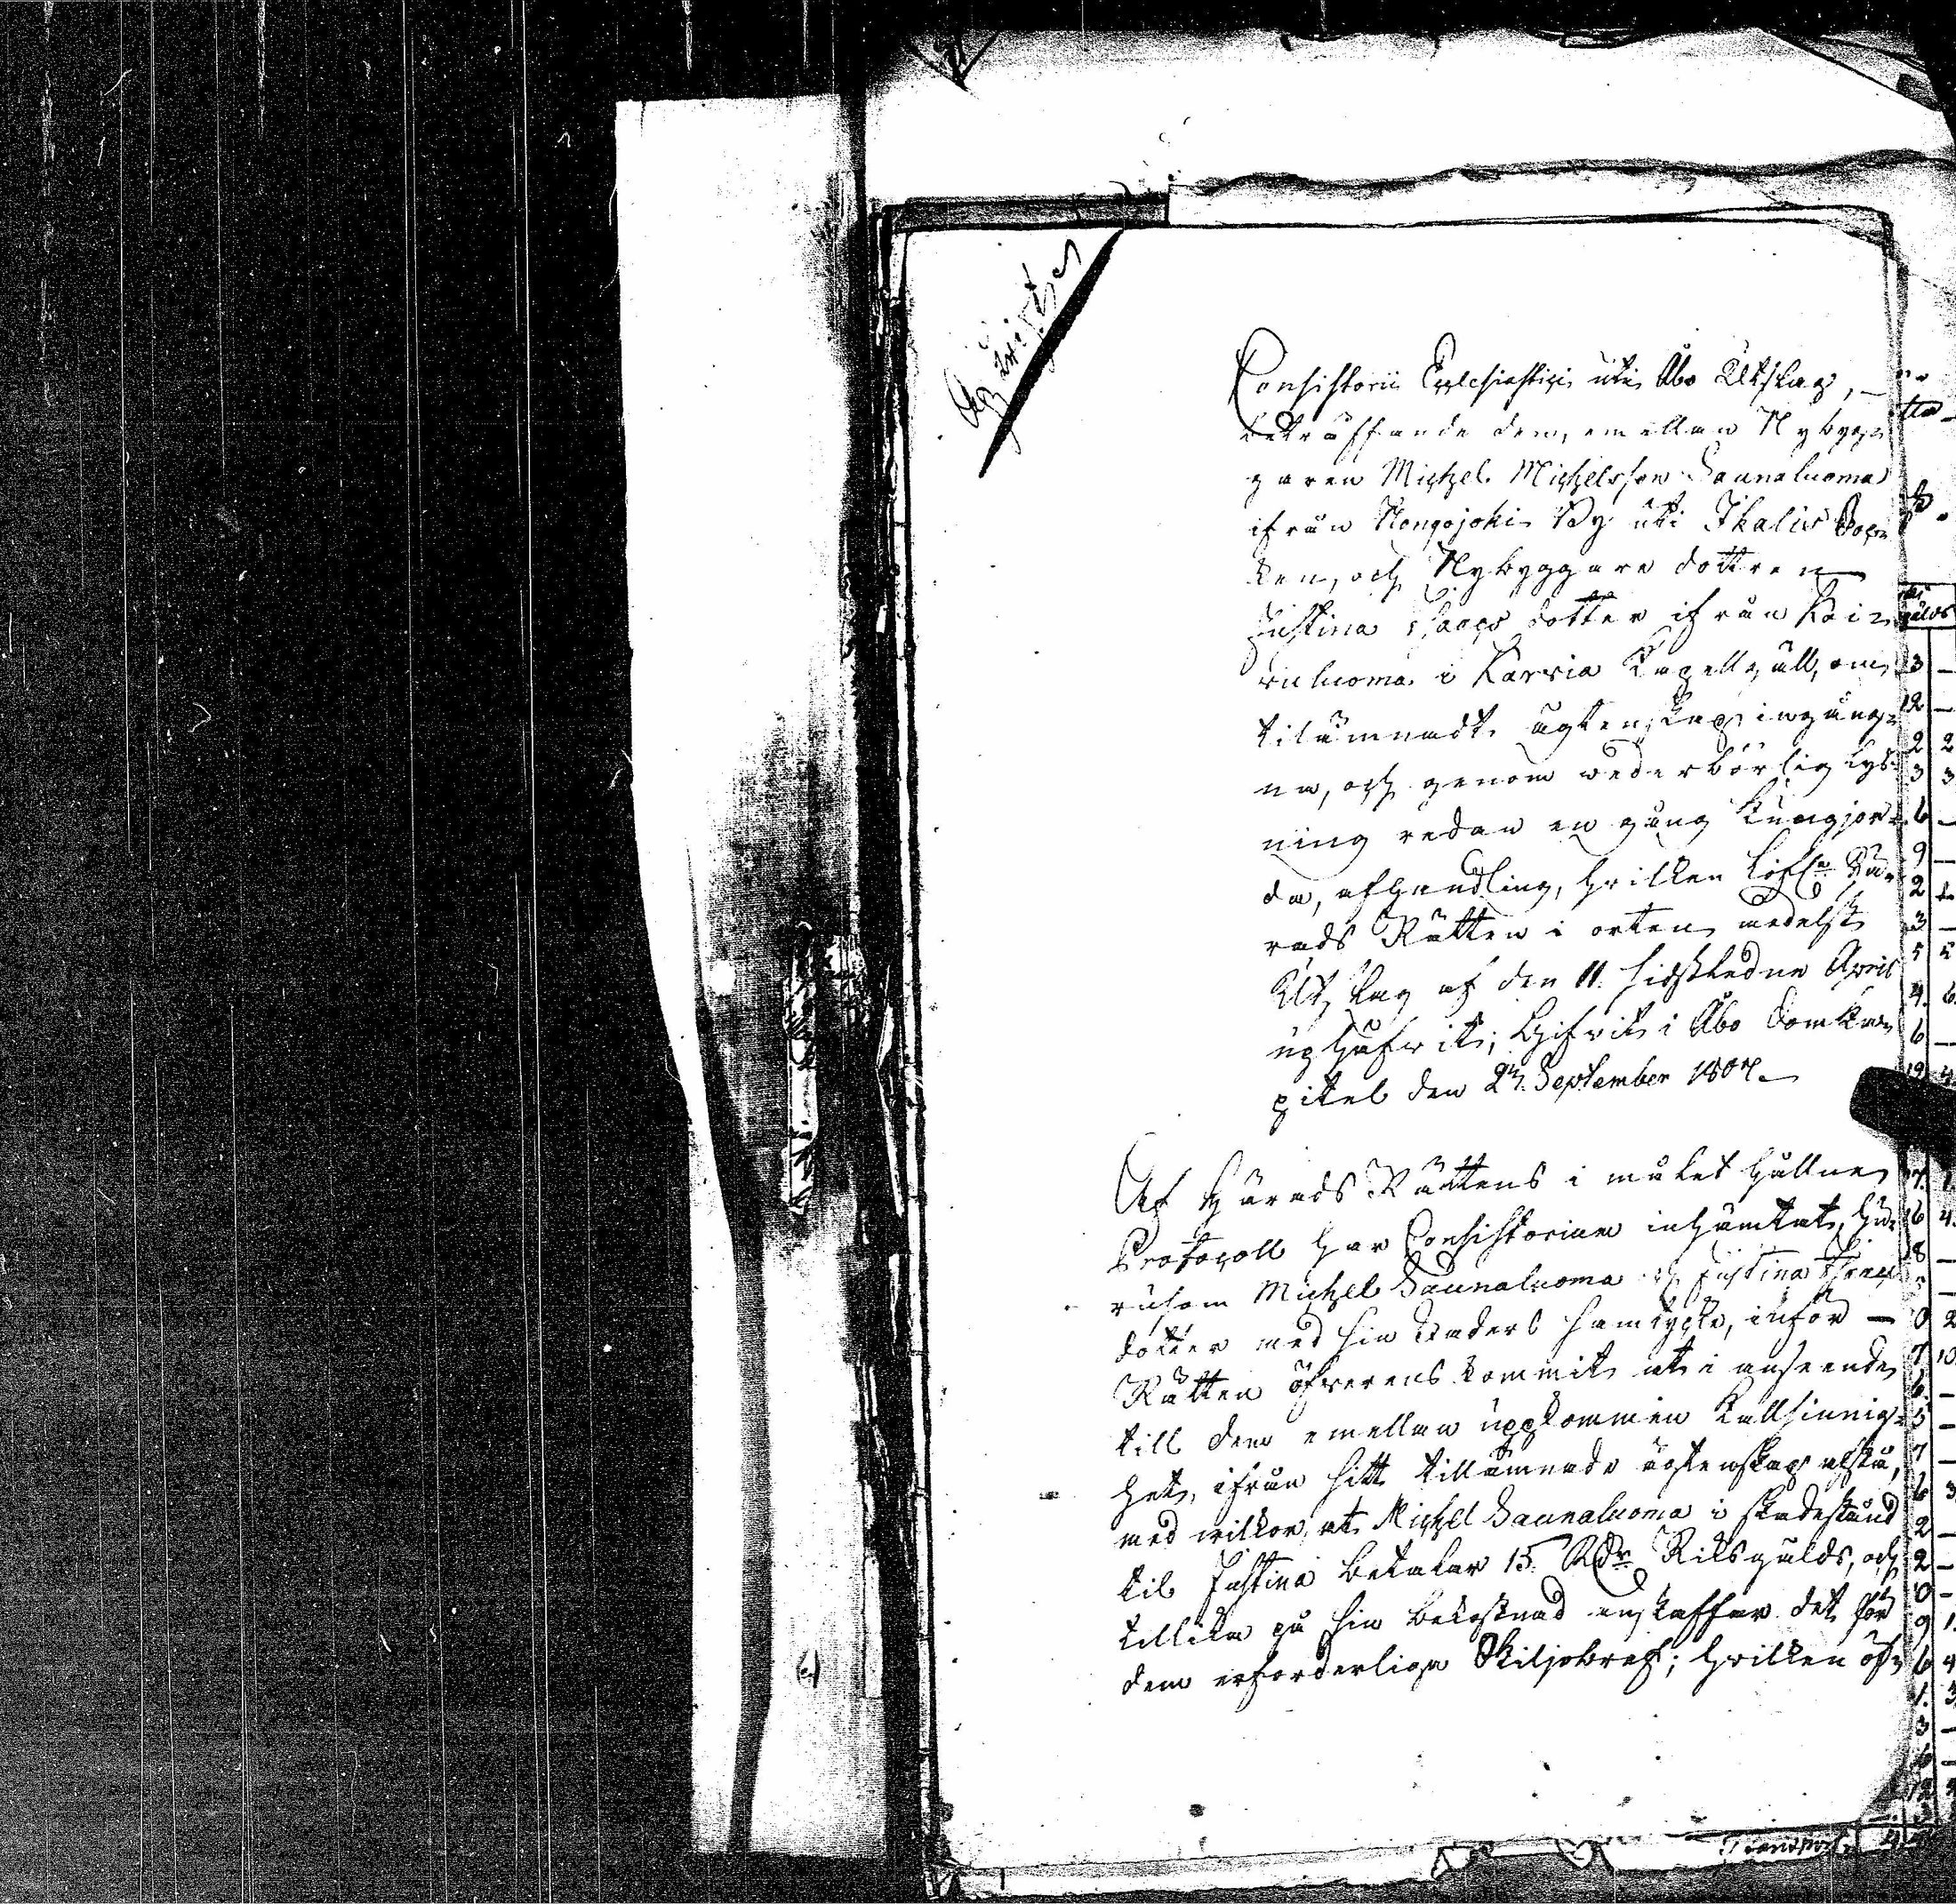 Afskrifter
Consistorii Ecclesiastici uti Åbo Utslag,
beträffande den, emellan Nybyg-
garen Michel Michelsson Saunaluoma
ifrån Nongojoki By uti Ikalis Soc-
ken, och Nybyggare dottren
Justina Isaacs dotter ifrån Kai-
viluoma i Karvia Kapellgäll, om
tilämnadt ägtenskap ingång-
na, och genom wederbörlig lys-
ning redan en gång kungjor-
da, afhandling, hvilken Lofl. Hä-
rads Rätten i orten medelst
Utslag af den 11. sidstledne April
uphäfvit; Gifvit i Åbo Domka-
pitel den 27. September 1804.
Af Härads Rättens i målet hållne
Protocoll har Consistorium inhämtat, hu-
rusom Michel Saunaluoma och Justina Isaacs
dotter med sin Faders samtycke, inför
Rätten öfverenskommit at i anseende
till dem emellan uppkommen Kallsinnig-
het, ifrån sitt tillämnade ägtenskap afstå,
med wilkor, at Michel Saunaluoma i skadestånd
til Justina betalar 15. Rdr Riksgälds, och
tillika på sin bekostnad anskaffar det för
dem erforderliga Skiljobref; hvilken öf-
Transport